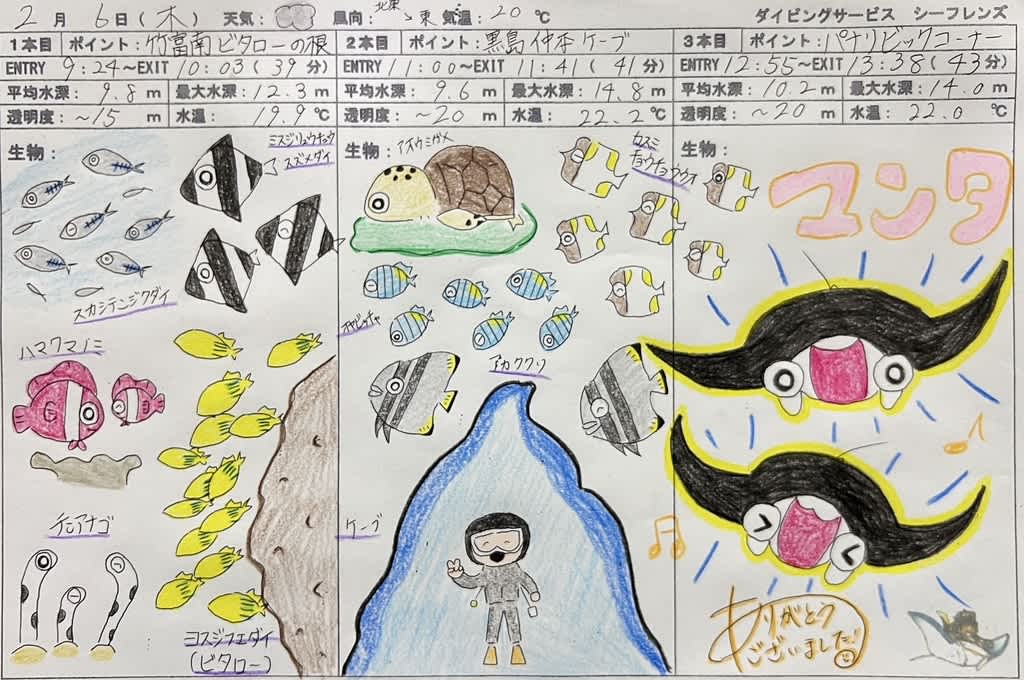 2月6日(木) 天気: 風向:北東→東 気温:20℃ ダイビングサービス シーフレンズ
1本目 ポイント:竹富南ビタローの根
ENTRY 9:24~EXIT 10:03(39分)
平均水深:9.8m 最大水深:12.3m
透明度:~15m 水温:19.9℃
生物:
ミスジリュウキュウ
スズメダイ
スカシテンジクダイ
ハマクマノミ
チンアナゴ
ヨスジフエダイ
(ビタロー)
2本目 ポイント:黒島仲本ケーブ
ENTRY 11:00~EXIT 11:41(41分)
平均水深:9.6m 最大水深:14.8m
透明度:~20m 水温:22.2℃
生物:
アオウミガメ
カスミ
チョウチョウウオ
オヤビッチャ
アカククリ
ケーブ
3本目 ポイント:パナリビックコーナー
ENTRY 12:55~EXIT 13:38(43分)
平均水深:10.2m 最大水深:14.0m
透明度:~20m 水温:22.0℃
生物:
マンタ
ありがとう
ございました!